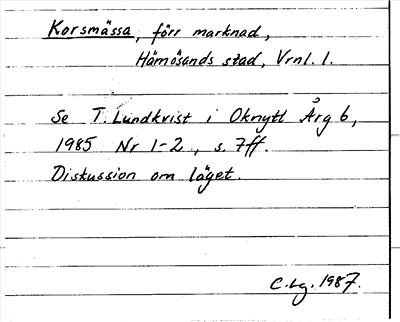 Korsmässa, förr marknad,
Härnösands stad, Vrnl. l.
Se T. Lundkvist i Oknytt Årg 6,
1985 Nr 1-2, s. 7ff.
Diskussion om läget.
C.Lg. 1987.